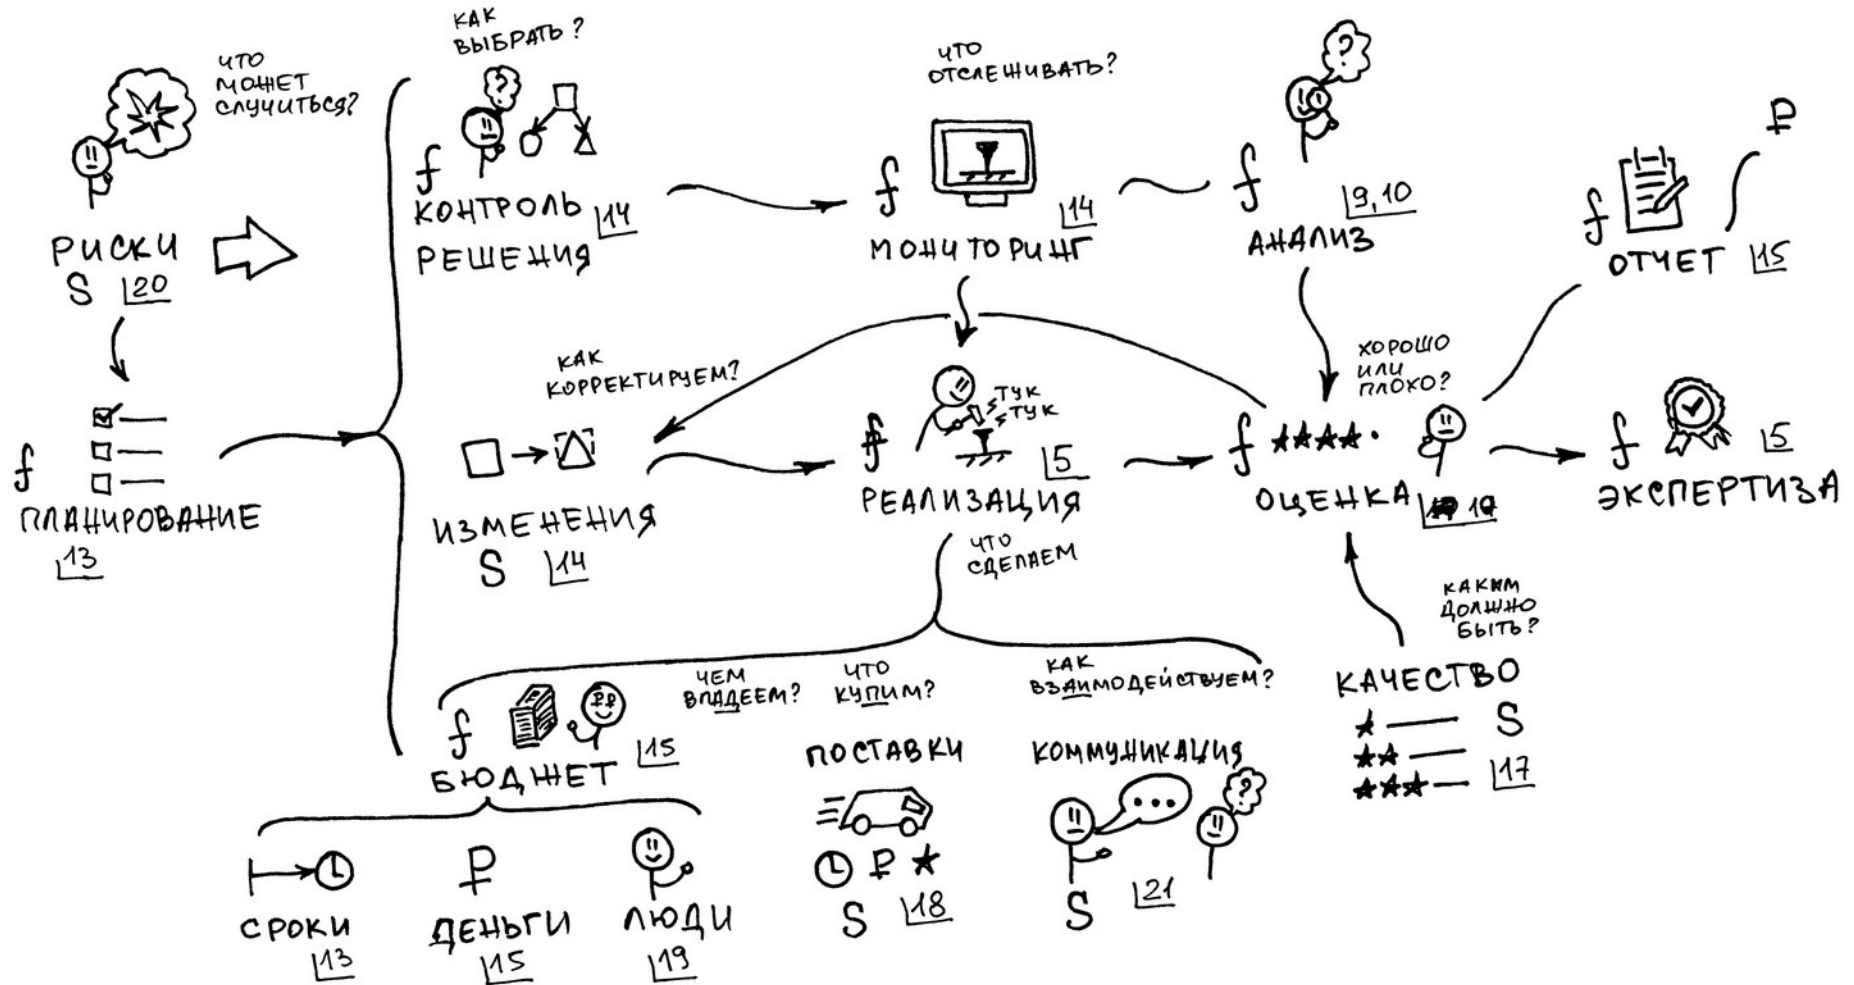 ЧТО
МОЖЕТ
СЛУЧИТЬСЯ?
РИСКИ
S 20
f
ПЛАНИРОВАНИЕ
13
КАК
ВЫБРАТЬ?
?
f
КОНТРОЛЬ
РЕШЕНИЯ
14
ЧТО
ОТСЛЕЖИВАТЬ?
f
14
МОНИТОРИНГ
?
f
9,10
АНАЛИЗ
₽
f
ОТЧЕТ 15
КАК
КОРРЕКТИРУЕМ?
ИЗМЕНЕНИЯ
S 14
ТУК
ТУК
f
5
РЕАЛИЗАЦИЯ
ЧТО
СДЕЛАЕМ
ХОРОШО
ИЛИ
ПЛОХО?
f
ОЦЕНКА
f
5
ЭКСПЕРТИЗА
КАКИМ
ДОЛЖНО
БЫТЬ?
КАЧЕСТВО
S
17
ЧЕМ
ВЛАДЕЕМ?
f
₽₽
15
БЮДЖЕТ
СРОКИ
13
₽
ДЕНЬГИ
15
ЛЮДИ
19
ЧТО
КУПИМ?
ПОСТАВКИ
₽
S 18
КАК
ВЗАИМОДЕЙСТВУЕМ?
КОММУНИКАЦИЯ
...
?
S 21